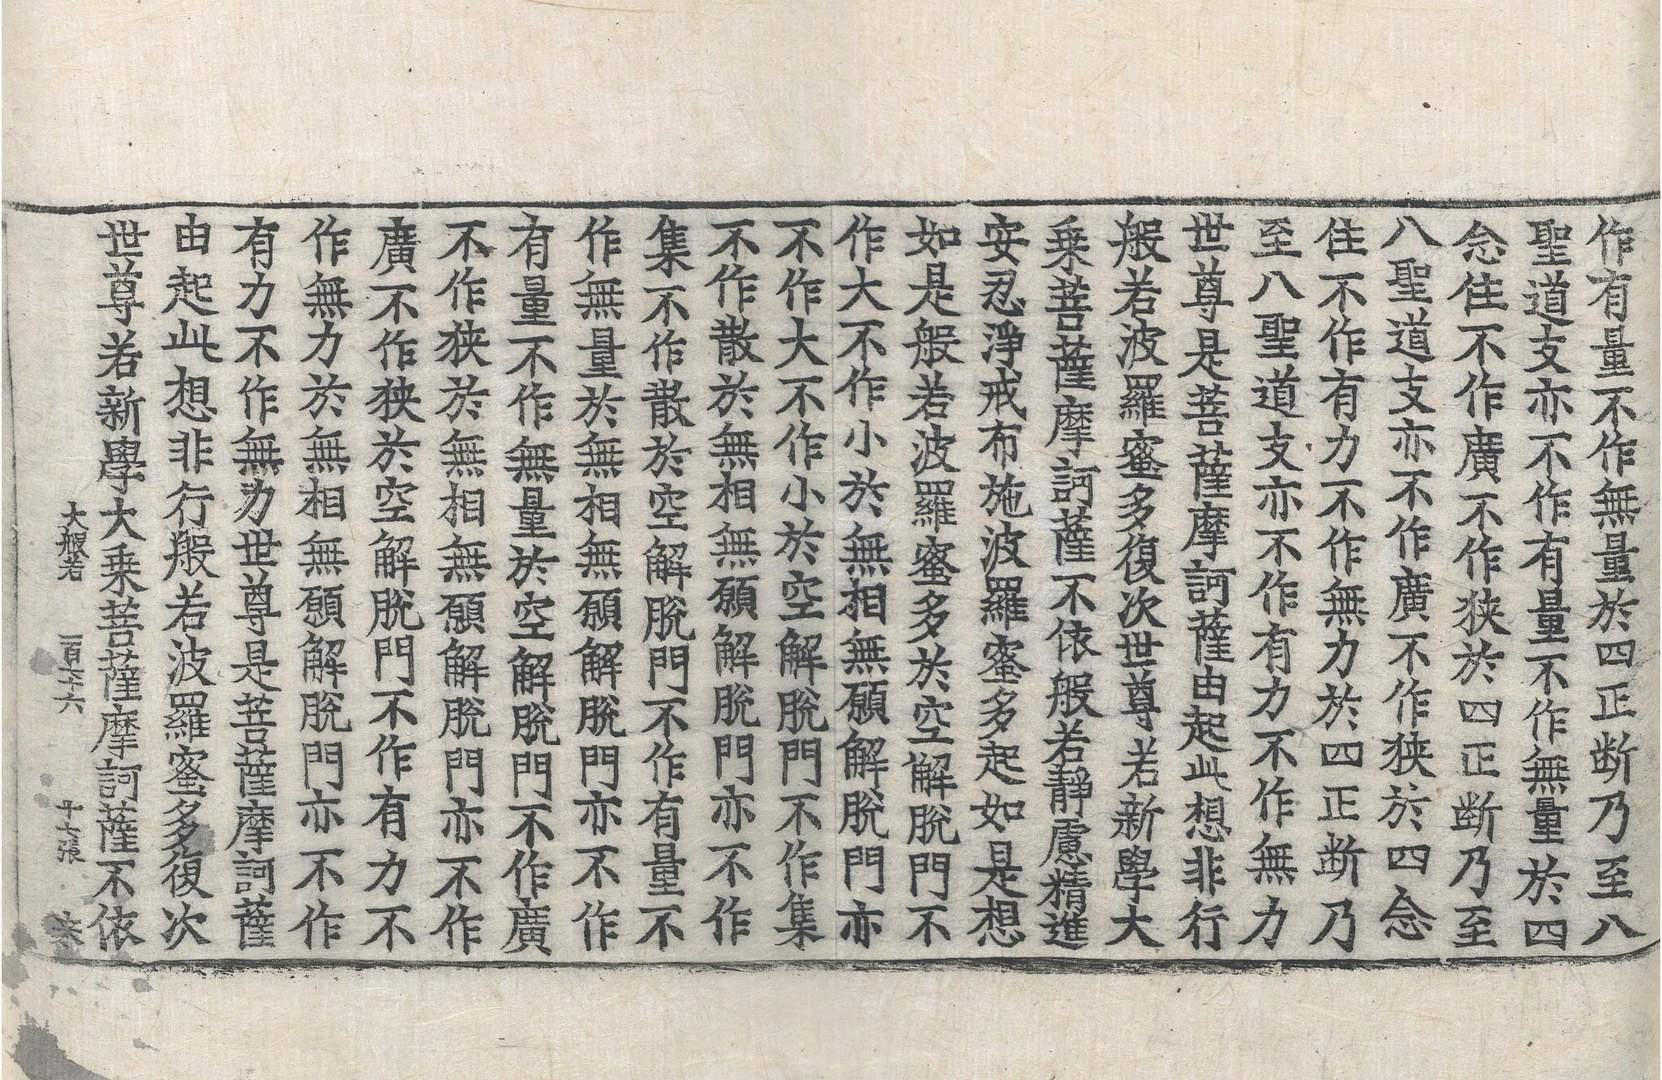 作有量不作無量於四正断乃至八
聖道支亦不作有量不作無量於四
念住不作廣不作狭於四正断乃至
八聖道支亦不作廣不作狭於四念
住不作有力不作無力於四正断乃
至八聖道支亦不作有力不作無力
世尊是菩薩摩訶薩由起此想非行
般若波羅蜜多復次世尊若新學大
乗菩薩摩訶薩不依般若靜慮精進
安忍淨戒布施波羅蜜多起如是想
如是般若波羅蜜多於空解脫門不
作大不作小於無相無願解脫門亦
不作大不作小於空解脫門不作集
不作散於無相無願解脫門亦不作
集不作散於空解脫門不作有量不
作無量於無相無願解脫門亦不作
有量不作無量於空解脫門不作廣
不作狭於無相無願解脫門亦不作
廣不作狭於空解脫門不作有力不
作無力於無相無願解脫門亦不作
有力不作無力世尊是菩薩摩訶薩
由起此想非行般若波羅蜜多復次
世尊若新學大乗菩薩摩訶薩不依
大般若 一百七十六 十六張 来